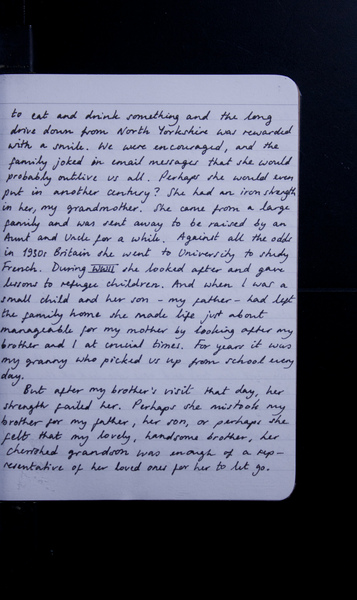 to eat and drink something and the long
drive down from North Yorkshire was rewarded
with a smile. We were encouraged, and the
family joked in email messages that she would
probably outlive us all. Perhaps she would even
put in another century? She had an iron strength
in her, my grandmother. She came from a large
family and was sent away to be raised by an
Aunt and Uncle for a while. Against all the odds
in 1930s Britain she went to University to study
French. During WWII she looked after and gave
lessons to refugee children. And when I was a
small child and her son - my father - had left
the family home she made life just about
manageable for my mother by looking after my
brother and I at crucial times. For years it was
my granny who picked us up from school every
day.
But after my brother's visit that day, her
strength failed her. Perhaps she mistook my
brother for my father, her son, or perhaps she
felt that my lovely, handsome brother, her
cherished grandson was enough of a rep-
resentative of her loved ones for her to let go.